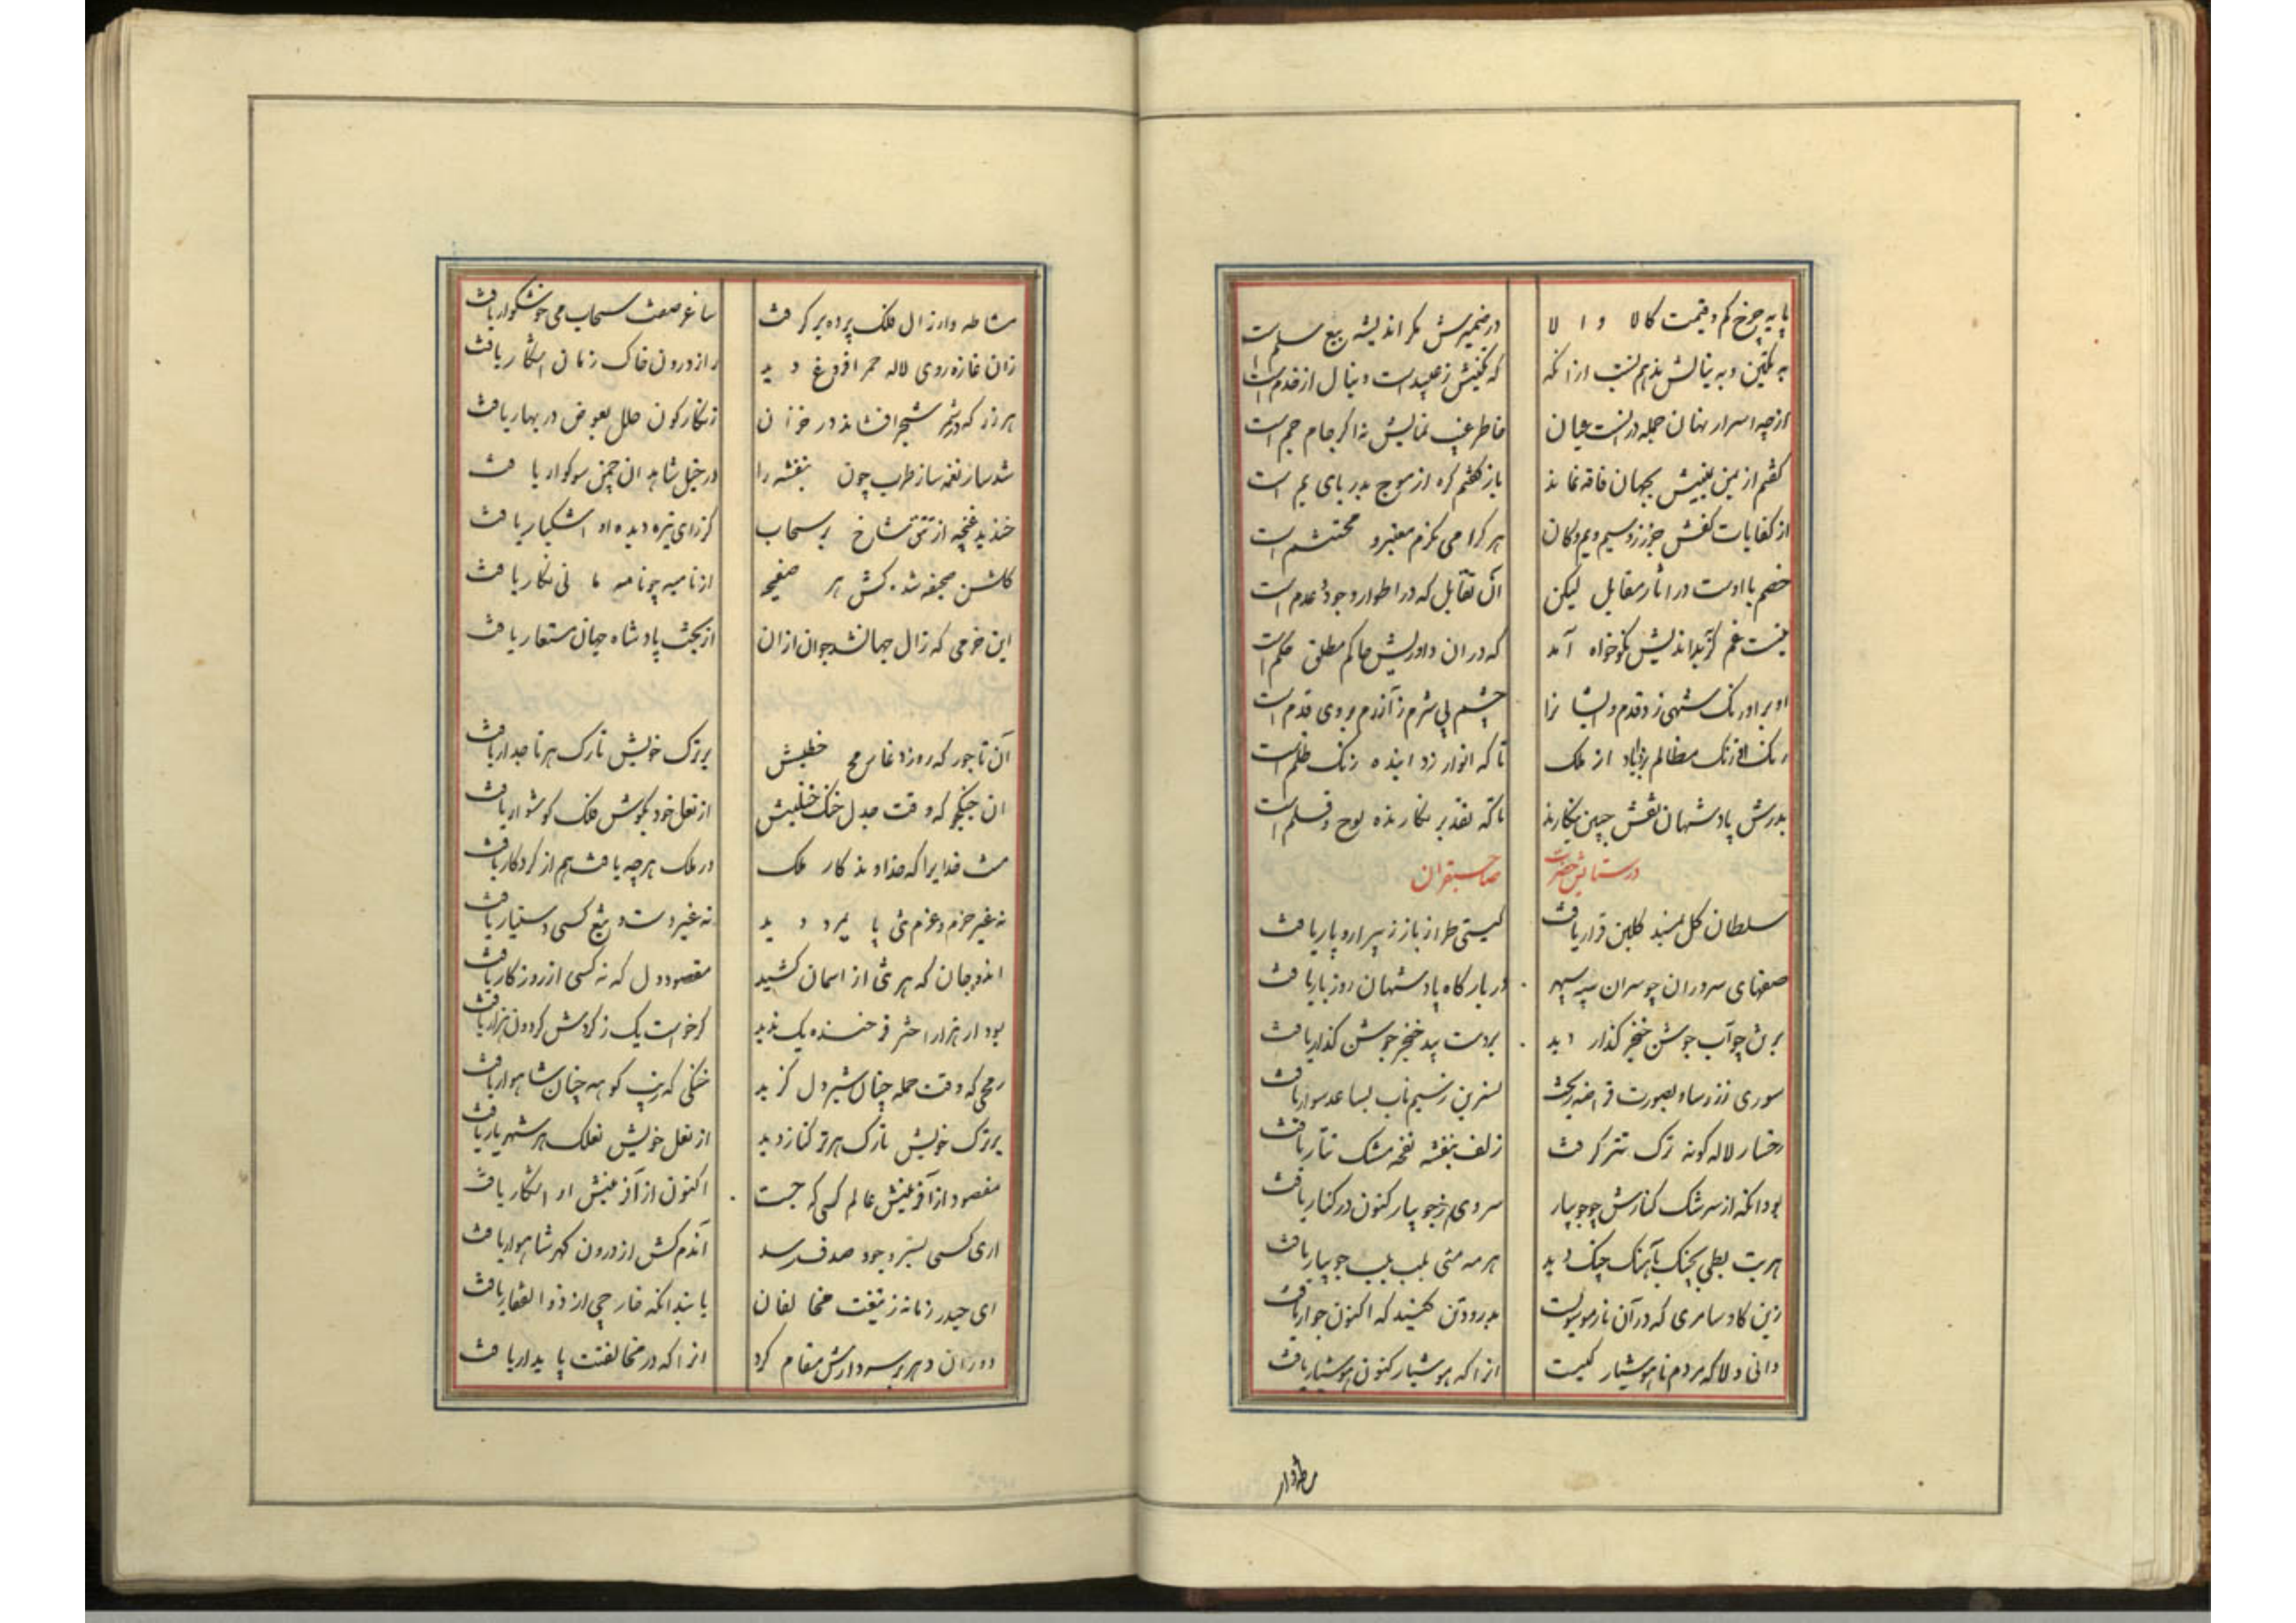 پایه چرخ کم و قیمت کالا والا در ضمیرش مگر اندیشه بیع سلم است
به یمین و به شمالش نه هم است از آنکه که یمینش ز عبید است و شمال از خدم است
از چه اسرار نهان جمله در اوست عیان خاطر غیب نمایش نه اگر جام جم است
گفتم از بین جهان فاقه نماند باز گفتم که از موج بدریای یم است
از کفایات کفش جز زر و سیم و یم و کان هر کرا می نگرم معتبر و محتشم است
خصم با اوست در آثار مقابل لیکن آن تقابل که در اطوار وجود و عدم است
نیست غم گر بداندیش نکوخواه آمد که در آن داوریش حاکم مطلق حکم است
او بر اورنگ شهی زد قدم و چشم بی شرم ز آزرم بر وی قدم است
رنگ مظالم از ملک تا که انوار زداینده زنگ ظلم است
بدرش پادشهان نقش جبین بنگارند تا که تقدیر نگارنده لوح و قلم است
در ستایش حضرت صاحبقران
سلطان گل بمسند گلبن قرار یافت گیتی طراز باز ز پیرار و پار یافت
صفهای سروران چو سران سپه سپهر در بارگاه پادشهان روز بار یافت
برق چو آب جوشن خنجر گذار دید بر دست بید خنجر جوشن گذار یافت
سوری ز زر ساو بصورت قراضه ریخت نسرین ز سیم ناب بساعد سوار یافت
رخسار لاله گونه ترک تتر گرفت زلف بنفشه نفحه مشک تتار یافت
بود آنکه از سرشک کنارش چو جویبار سروی ز جویبار کنون در کنار یافت
هر بت بطی بچنگ بآهنگ چنگ دید هر مه منی بلب بلب جویبار یافت
زین گاو سامری که در آن بدرود تن کنید که اکنون یافت
دانی دلا که مردم ناهوشیار کیست آنرا که هوشیار کنون هوشیار یافت
مشاطه وار
مشاطه وار زال فلک پرده بر گرفت ساغر صفت سحاب می خوشگوار یافت
زان غازه روی لاله حمرا فروغ دید راز درون خاک زمان آشکار یافت
هر زر که در شمر شجر افشاند در خزان زنگارگون حلل بعوض در بهار یافت
شد ساز نغمه ساز طرب چون بنفشه را در خیل شاهدان چمن سوگوار یافت
خندید غنچه از تتق شاخ بر سحاب کز رای تیره دیده او اشکبار یافت
گلشن صحیفه شد کش هر صفیحه از نامیه چو نامه مانی نگار یافت
این خرمی که زال جهان شد جوان از آن از بخت پادشاه جهان مستعار یافت
آن تاجور که روز دغا رمح خطیش بر ترک خویش تارک هر تاجدار یافت
آن جنگجو که وقت جدل خنگ ختلیش از نعل خود بگوش فلک گوشوار یافت
منت خدایرا که خداوند کار ملک در ملک هر چه یافت هم از کردگار یافت
نه غیر حزم و عزم تنی پایمرد دید نه غیر دست و تیغ کسی دستیار یافت
اندوه جان که هر تنی از آسمان کشید مقصود دل که نه کسی از روزگار یافت
بود ار هزار اختر فرخنده یک ندید گر خواست یک ز گردش گردون هزار یافت
رمحی که وقت حمله چنان شیردل گزید خنگی که زیب کوهه چنان شاهوار یافت
بر ترک خویش تارک هر ترکتاز دید از نعل خویش هر شهریار یافت
مقصود از آفرینش عالم کسی که جست اکنون از آفرینش او آشکار یافت
آری کسی بسر وجود صدف رسد آندم کش از درون گهر شاهوار یافت
ای حیدر زمانه ز تیغت مخالفان یابند آنکه خارجی از ذوالفقار یافت
دوران دهر بر سر دارش مقام کرد آنرا که در مخالفتت پایدار یافت